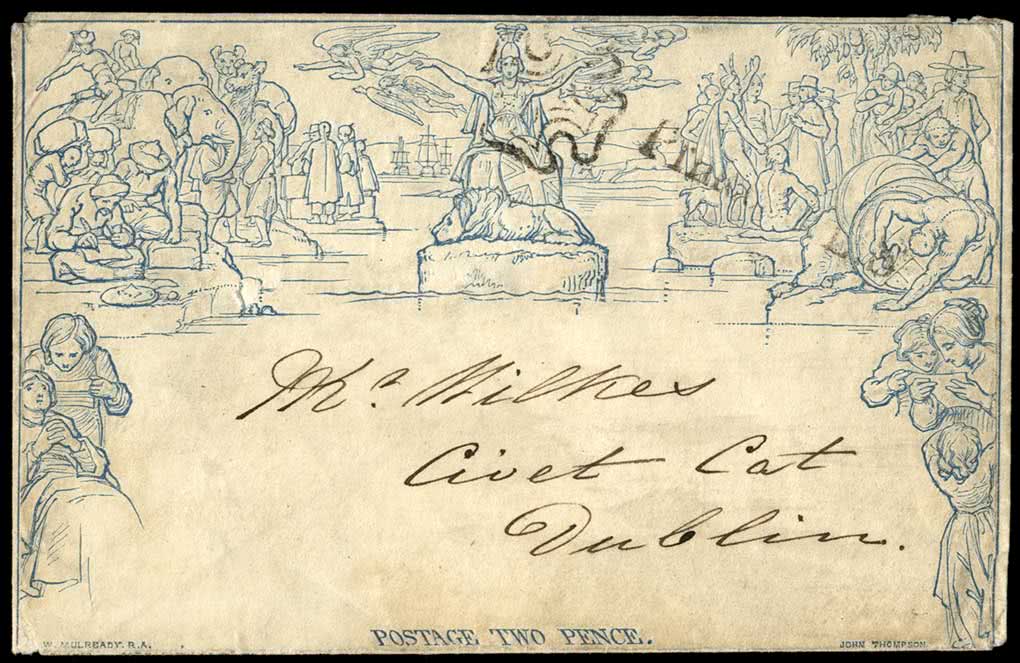 Mr. Wilkes
Civet Cat
Dublin.
W. MULREADY. R.A.
POSTAGE TWO PENCE.
JOHN THOMPSON